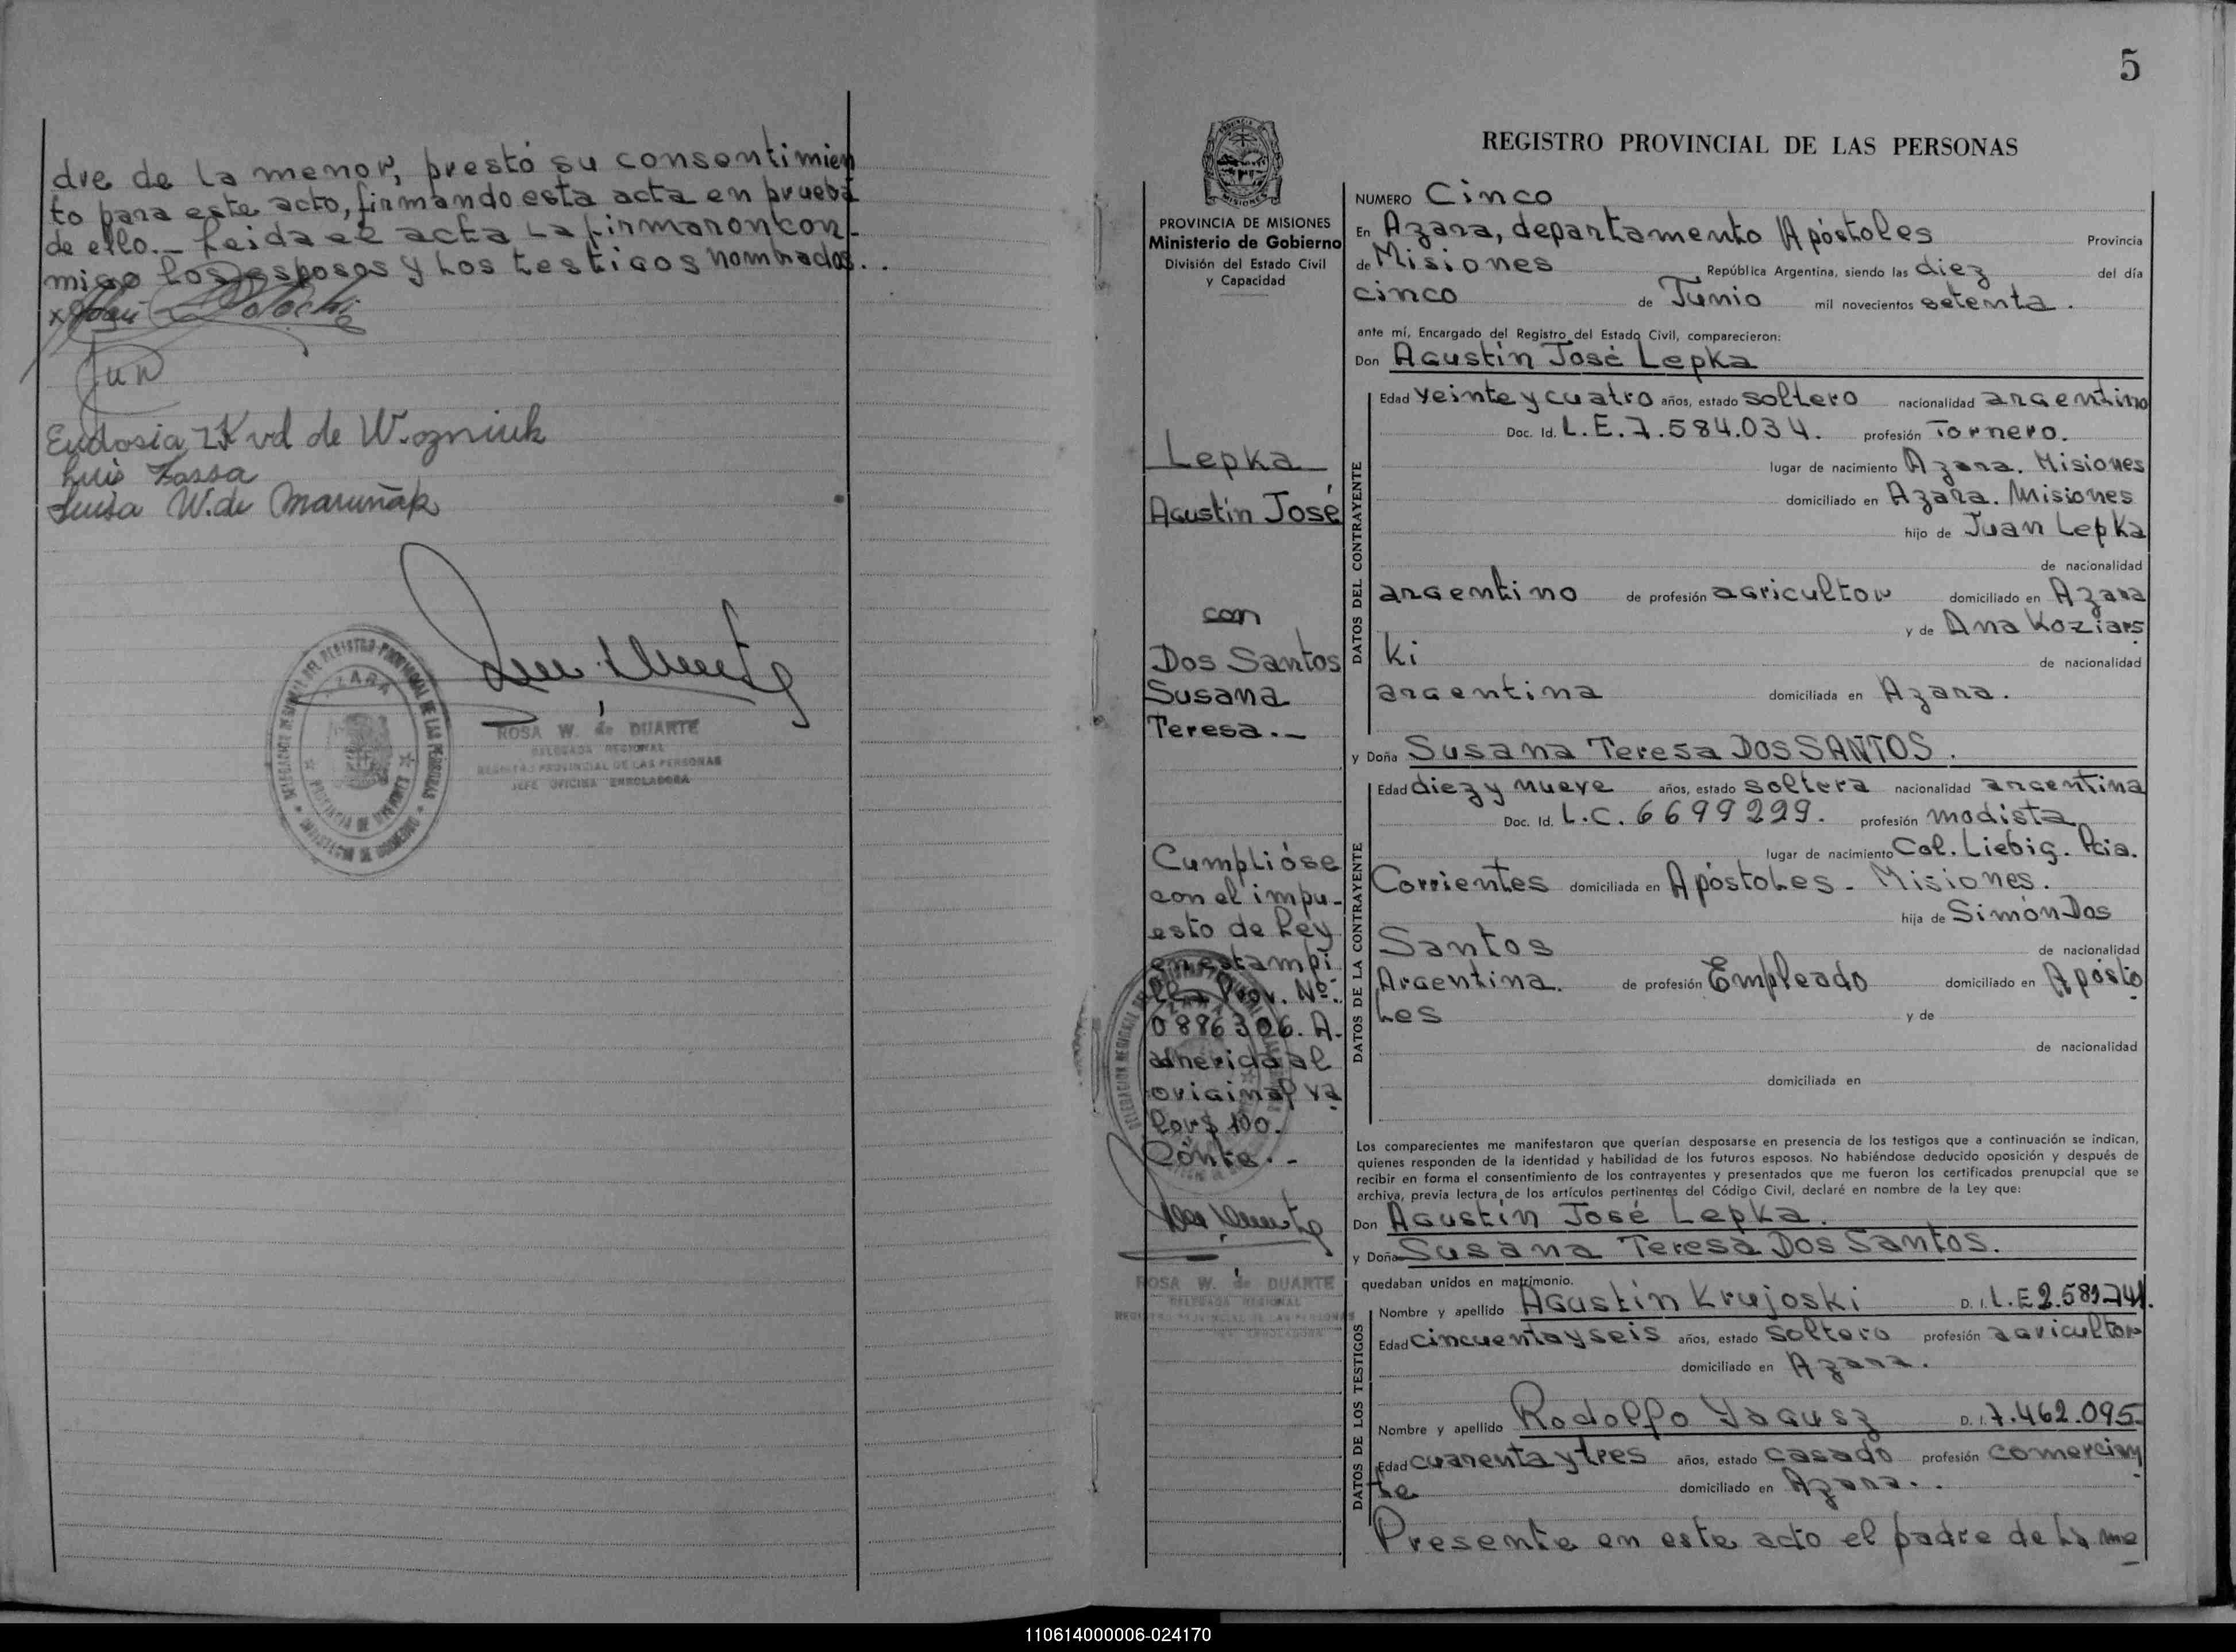 dre de la menor, prestó su consentimien
to para este acto, firmando esta acta en prueba
de ello.- Leida el acta la firmaron con-
migo los esposos y los testigos nombrados..
Eudosia Kvd de Wozniuk
Luis Zassa
Luisa W. de Maruñak
DELEGACION REGIONAL DEL REGISTRO PROVINCIAL DE LAS PERSONAS
AZARA
PROVINCIA DE MISIONES
MINISTERIO DE GOBIERNO
ROSA W. de DUARTE
DELEGADA REGIONAL
REGISTRO PROVINCIAL DE LAS PERSONAS
JEFE OFICINA ENROLADORA
5
PROVINCIA DE MISIONES
Ministerio de Gobierno
División del Estado Civil
y Capacidad
Lepka
Agustín José
con
Dos Santos
Susana
Teresa.-
Cumplióse
con el impu-
esto de Ley
en estampi
lla Prov. Nº.
0886306. A.
adherida al
original va
lor $ 100.
Conte.-
ROSA W. de DUARTE
DELEGADA REGIONAL
REGISTRO PROVINCIAL DE LAS PERSONAS
REGISTRO PROVINCIAL DE LAS PERSONAS
NUMERO Cinco
En Azara, departamento Apóstoles Provincia
de Misiones República Argentina, siendo las diez del día
cinco de Junio mil novecientos setenta.
ante mí, Encargado del Registro del Estado Civil, comparecieron:
Don Agustín José Lepka
DATOS DEL CONTRAYENTE
Edad veinte y cuatro años, estado soltero nacionalidad argentino
Doc. Id. L.E. 7.584.034. profesión Tornero.
lugar de nacimiento Azara. Misiones
domiciliado en Azara. Misiones
hijo de Juan Lepka
de nacionalidad
argentino de profesión agricultor domiciliado en Azara
y de Ana Koziars
ki de nacionalidad
argentina domiciliada en Azara.
y Doña Susana Teresa DOS SANTOS.
DATOS DE LA CONTRAYENTE
Edad diez y nueve años, estado soltera nacionalidad argentina
Doc. Id. L.C. 6699299. profesión modista
lugar de nacimiento Col. Liebig. Pcia.
Corrientes domiciliada en Apóstoles - Misiones.
hija de Simón Dos
Santos de nacionalidad
Argentina. de profesión Empleado domiciliado en Aposto
les y de
de nacionalidad
domiciliada en
Los comparecientes me manifestaron que querían desposarse en presencia de los testigos que a continuación se indican,
quienes responden de la identidad y habilidad de los futuros esposos. No habiéndose deducido oposición y después de
recibir en forma el consentimiento de los contrayentes y presentados que me fueron los certificados prenupcial que se
archiva, previa lectura de los artículos pertinentes del Código Civil, declaré en nombre de la Ley que:
Don Agustín José Lepka.
y Doña Susana Teresa Dos Santos.
quedaban unidos en matrimonio.
DATOS DE LOS TESTIGOS
Nombre y apellido Agustín Krujoski D. I. L.E 2.589.741.
Edad cincuenta y seis años, estado soltero profesión agricultor
domiciliado en Azara.
Nombre y apellido Rodolfo Yagusz D. I. 7.462.095
Edad cuarenta y tres años, estado casado profesión comercian
te domiciliado en Azara..
Presente en este acto el padre de la me
110614000006-024170